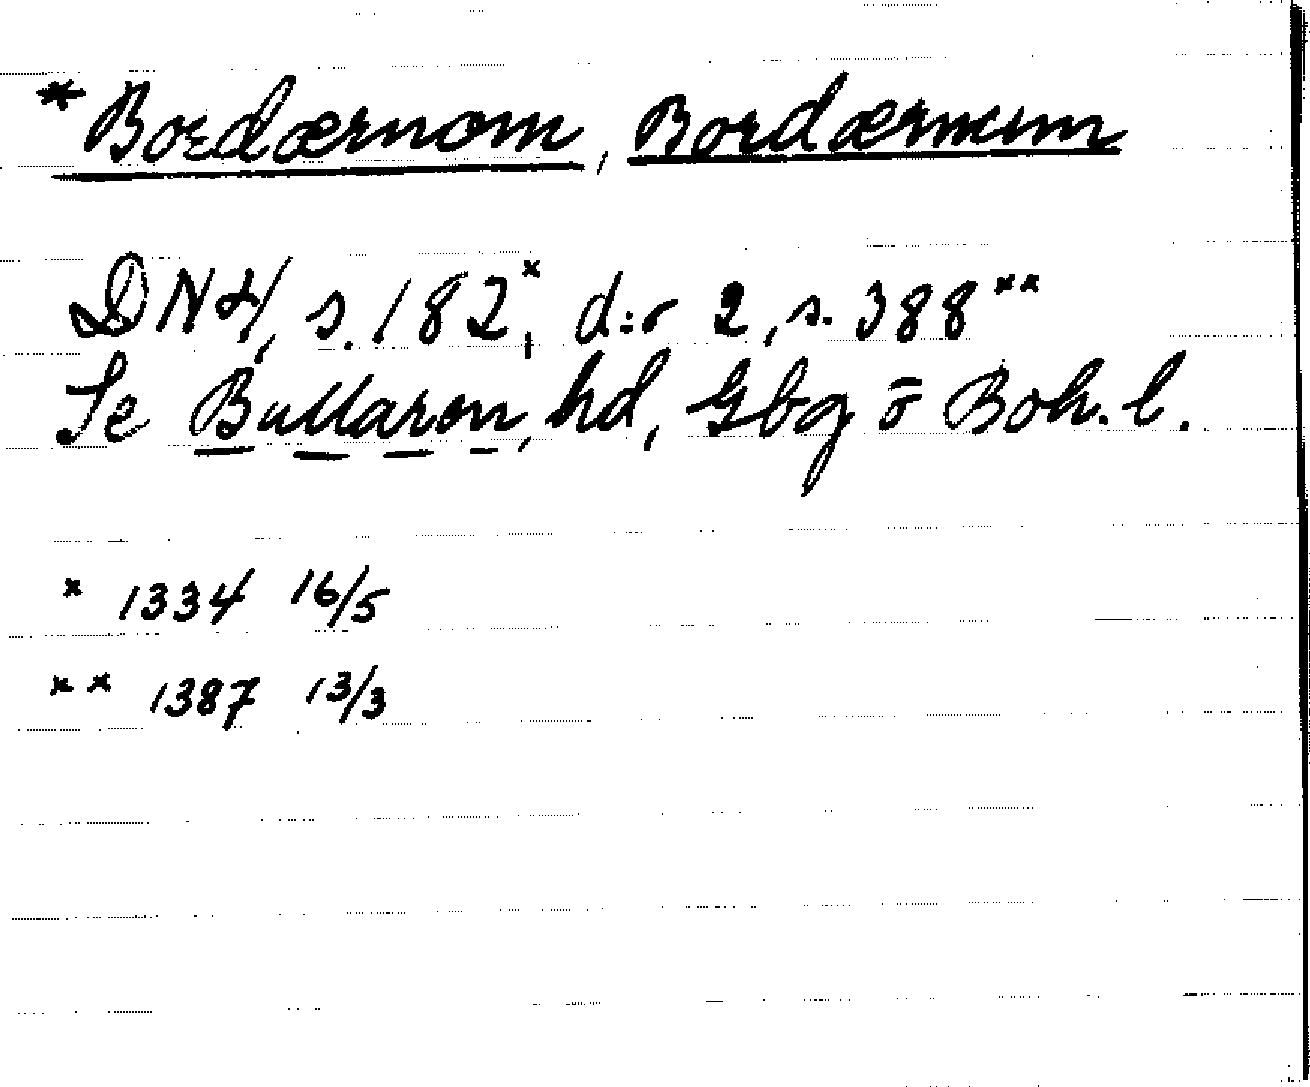 *Bordærnom, Bordærnum
DN 4, s. 182*, d:o 2, s. 388**
Se Bullaren, hd, Gbg o Boh. l.
* 1334 16/5
** 1387 13/3